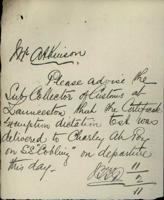 Mr Atkinson
Please advise the
Sub Collector of Customs at
Launceston that the Certificate
exemption dictation test was
delivered to Charley Ah Poy
on SS "Coblinz" on departure
this day.
11
2
11